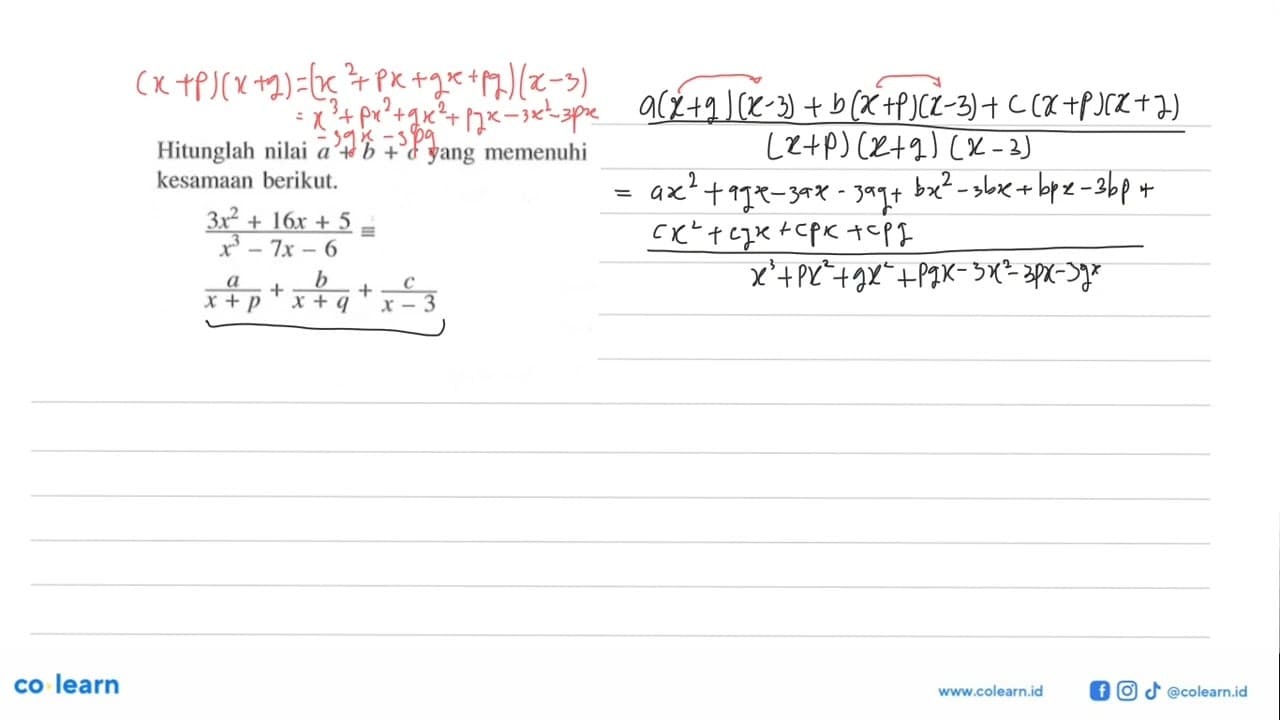 (x+p)(x+q)=(x²+px+qx+pq)(x-3)
= x³+px²+qx²+pqx-3x²-3px
-3qx-3pq
Hitunglah nilai a + b + c yang memenuhi
kesamaan berikut.
3x² + 16x + 5 ≡
x³ – 7x – 6
a + b + c
x + p x + q x – 3
a(x+q)(x-3)+b(x+p)(x-3)+c(x+p)(x+q)
(x+p)(x+q)(x-3)
= ax²+aqx-3ax-3aq+bx²-3bx+bpx-3bp+
cx²+cqx+cpx+cpq
x³+px²+qx²+pqx-3x²-3px-3qx
co learn
www.colearn.id
@colearn.id